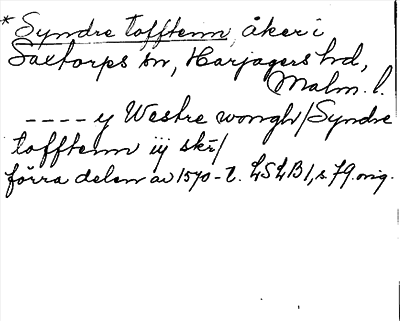 * Syndre tofftenn, åker i
Saxtorps sn, Harjagers hd,
Malm. l.
---- y Westre wongh/Syndre
tofftenn iij skr/
förra delen av 1570-t. LSLB 1, s. 79. orig.